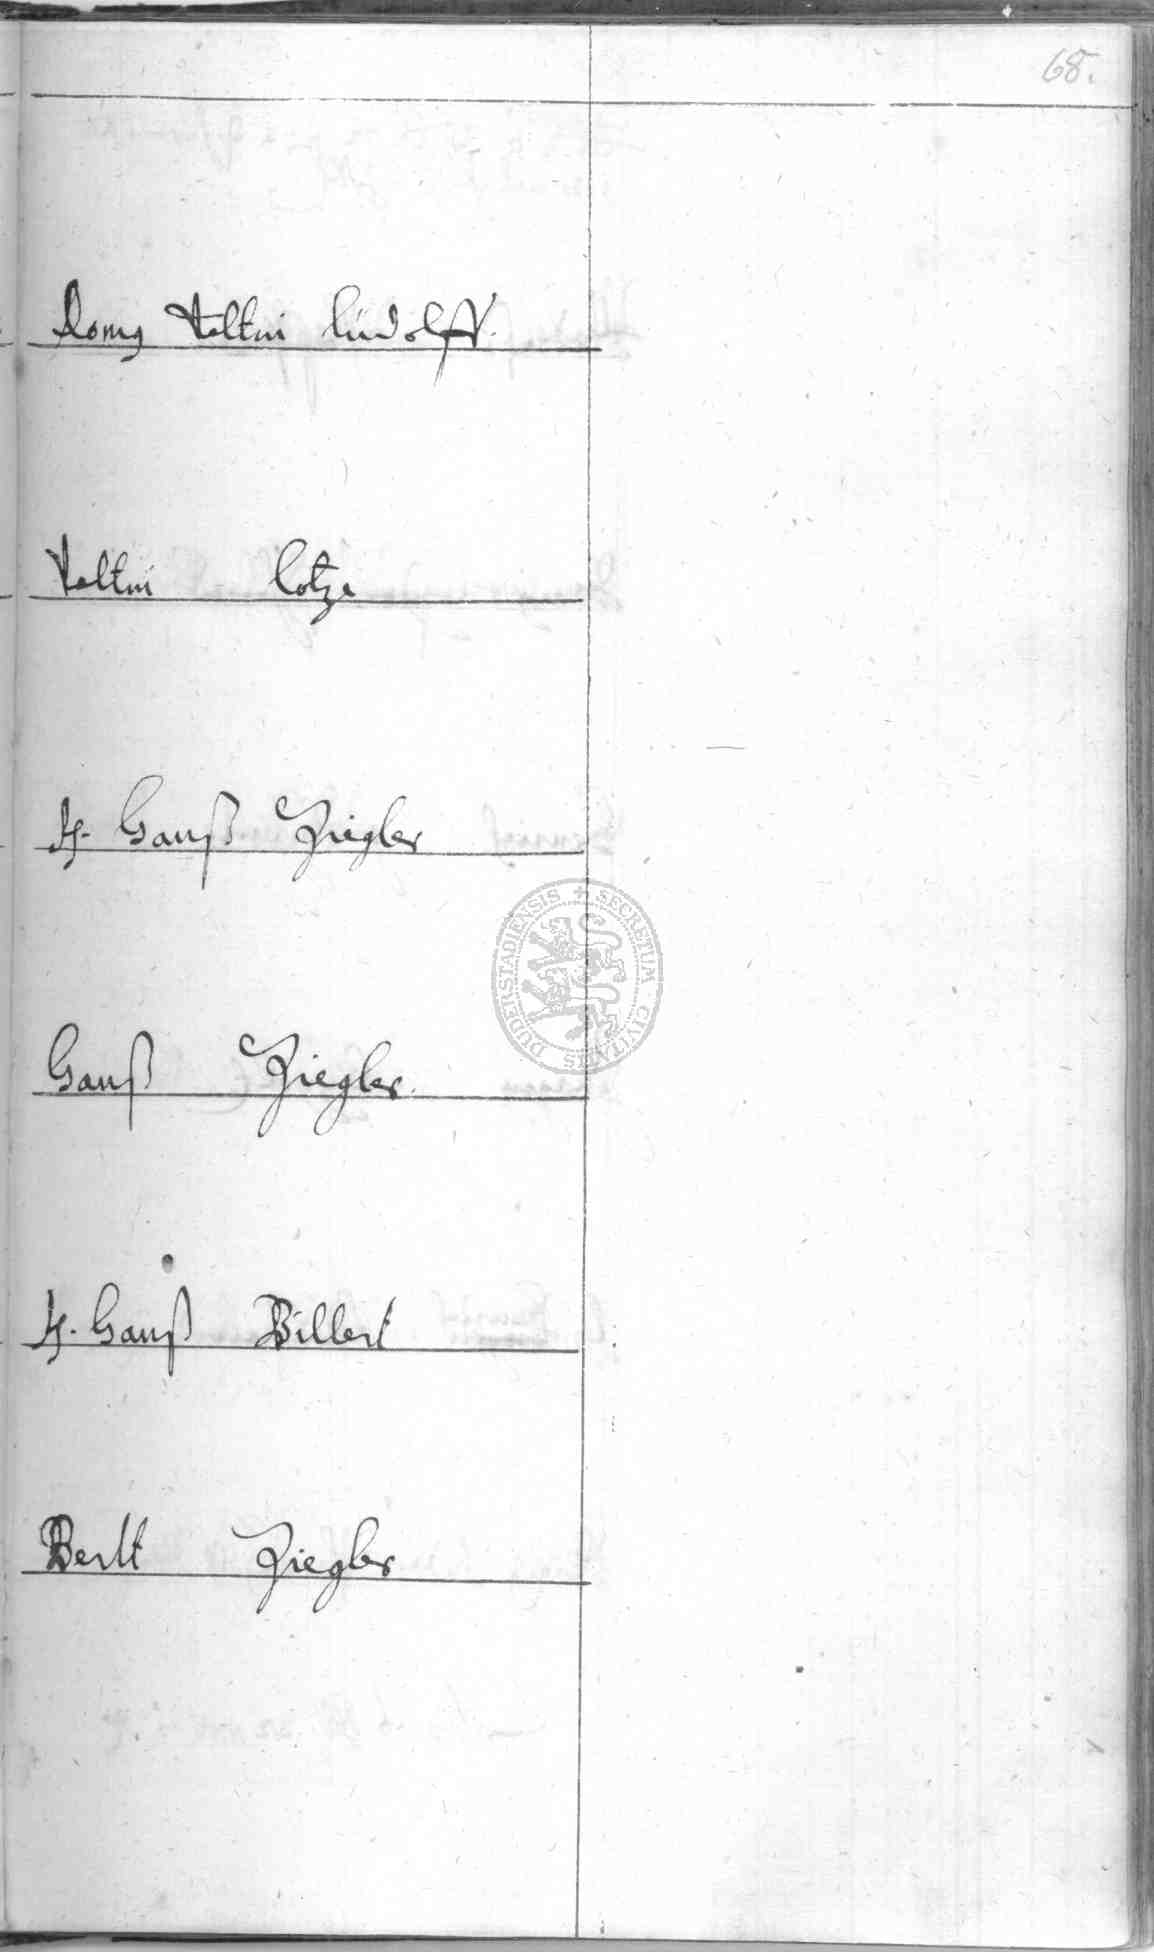 68.
Veltin Ludolff.
Veltin Lotze
H. Hanß Ziegler
SECRETUM CIVITATIS DUDERSTADIENSIS
Hanß Ziegler.
H. Hanß Billert
Bertt Ziegler